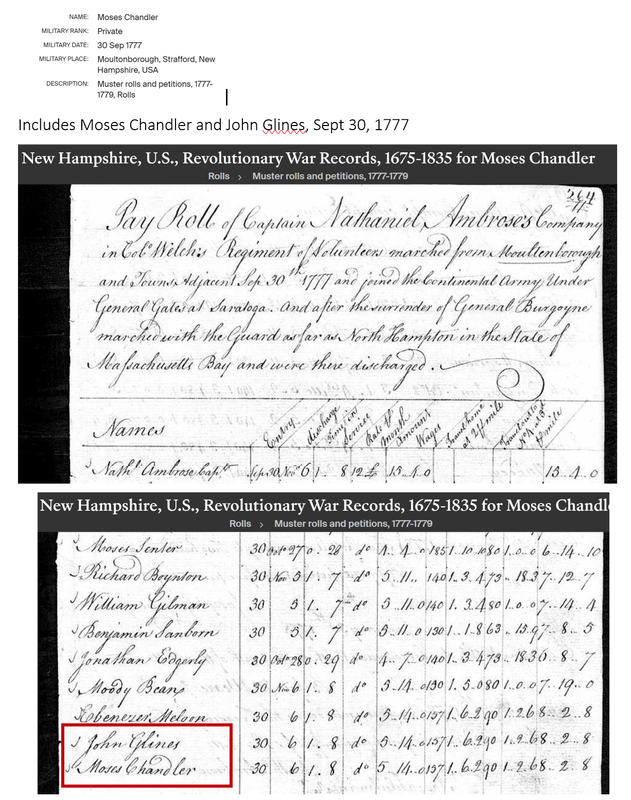 NAME: Moses Chandler
MILITARY RANK: Private
MILITARY DATE: 30 Sep 1777
MILITARY PLACE: Moultonborough, Strafford, New
Hampshire, USA
DESCRIPTION: Muster rolls and petitions, 1777-
1779, Rolls
Includes Moses Chandler and John Glines, Sept 30, 1777
New Hampshire, U.S., Revolutionary War Records, 1675-1835 for Moses Chandler
Rolls > Muster rolls and petitions, 1777-1779
264
Pay Roll of Captain Nathaniel Ambrose's Company
in Colo Welch's Regiment of Volunteers marched from Moultenborough
and Towns Adjacent Sep. 30th 1777 and joined the Continental Army Under
General Gates at Saratoga. And after the surrender of General Burgoyne
marched with the Guard as far as North Hampton in the State of
Massachusetts Bay and were there discharged.
Names Entry discharge Time in Service Rate pr Month Amount Wages
Nathl Ambrose Capt. Sep 30 Nov 6 1 .. 8 12£ 15 .. 4 .. 0 15 .. 4 .. 0
New Hampshire, U.S., Revolutionary War Records, 1675-1835 for Moses Chandl
Rolls > Muster rolls and petitions, 1777-1779
Moses Senter 30 Octr 27 0 .. 28 do 4 .. 4 .. 0 185 1 .. 10 .. 10 80 1 .. 0 .. 0 6 .. 14 .. 10
Richard Boynton 30 Nov 5 1 .. 7 do 5 .. 11 .. 140 1 .. 3 .. 4 73 .. 18 .. 3 7 .. 12 .. 7
William Gilman 30 5 1 .. 7 do 5 .. 11 .. 0 140 1 .. 3 .. 4 80 1 .. 0 .. 0 7 .. 14 .. 4
Benjamin Sanborn 30 5 1 .. 7 do 5 .. 11 .. 0 130 1 .. 1 .. 8 63 .. 15 .. 9 7 .. 8 .. 5
Jonathan Edgerly 30 Octr 28 0 .. 29 do 4 .. 7 .. 0 140 1 .. 3 .. 4 73 .. 18 .. 3 6 .. 8 .. 7
Moody Bean 30 Nov 6 1 .. 8 do 5 .. 14 .. 0 130 1 .. 5 .. 0 80 1 .. 0 .. 0 7 .. 19 .. 0
Ebenezer Meloon 30 6 1 .. 8 do 5 .. 14 .. 0 157 1 .. 6 .. 2 90 1 .. 2 .. 6 8 .. 2 .. 8
John Glines 30 6 1 .. 8 do 5 .. 14 .. 0 157 1 .. 6 .. 2 90 1 .. 2 .. 6 8 .. 2 .. 8
Moses Chandler 30 6 1 .. 8 do 5 .. 14 .. 0 157 1 .. 6 .. 2 90 1 .. 2 .. 6 8 .. 2 .. 8